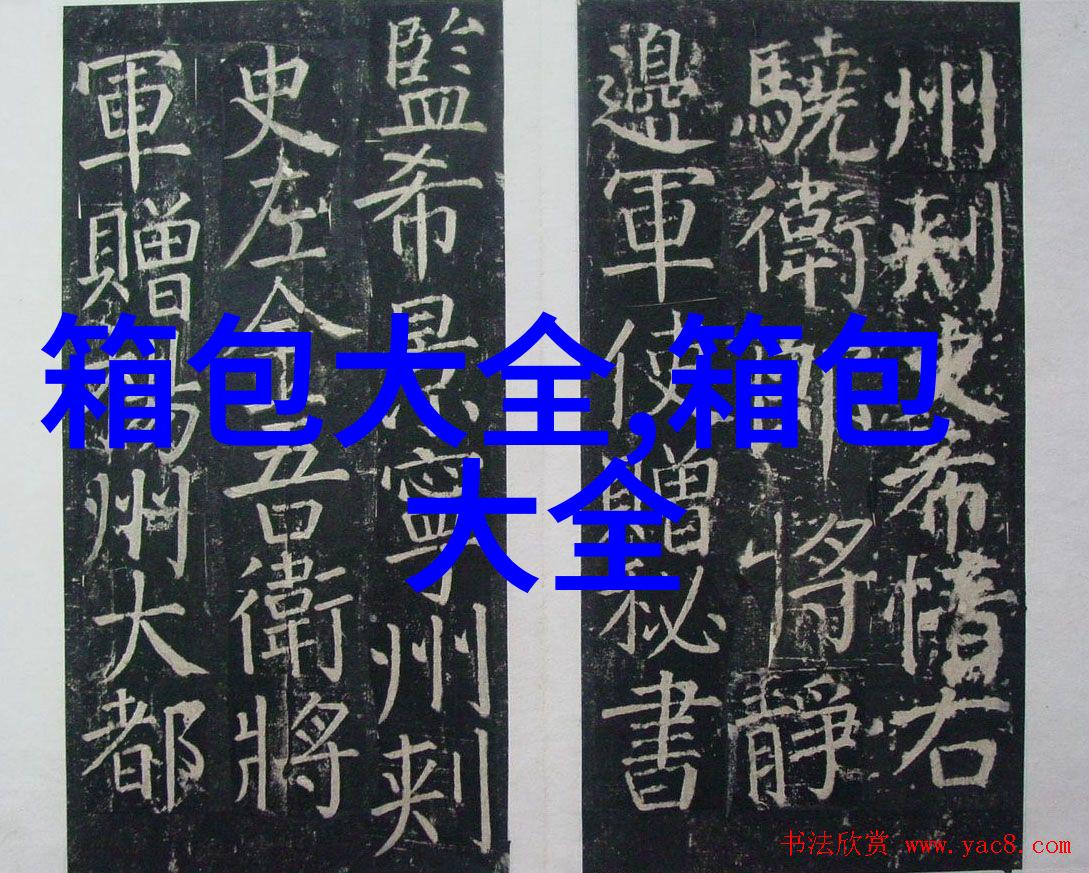 州刾史希愔右
驍衛郎將靜
邊軍使贈秘書
監希景寧州刾
史左金吾衛將
軍贈揚州大都
箱包大全,箱包
大全
书法欣赏 www.yac8.com